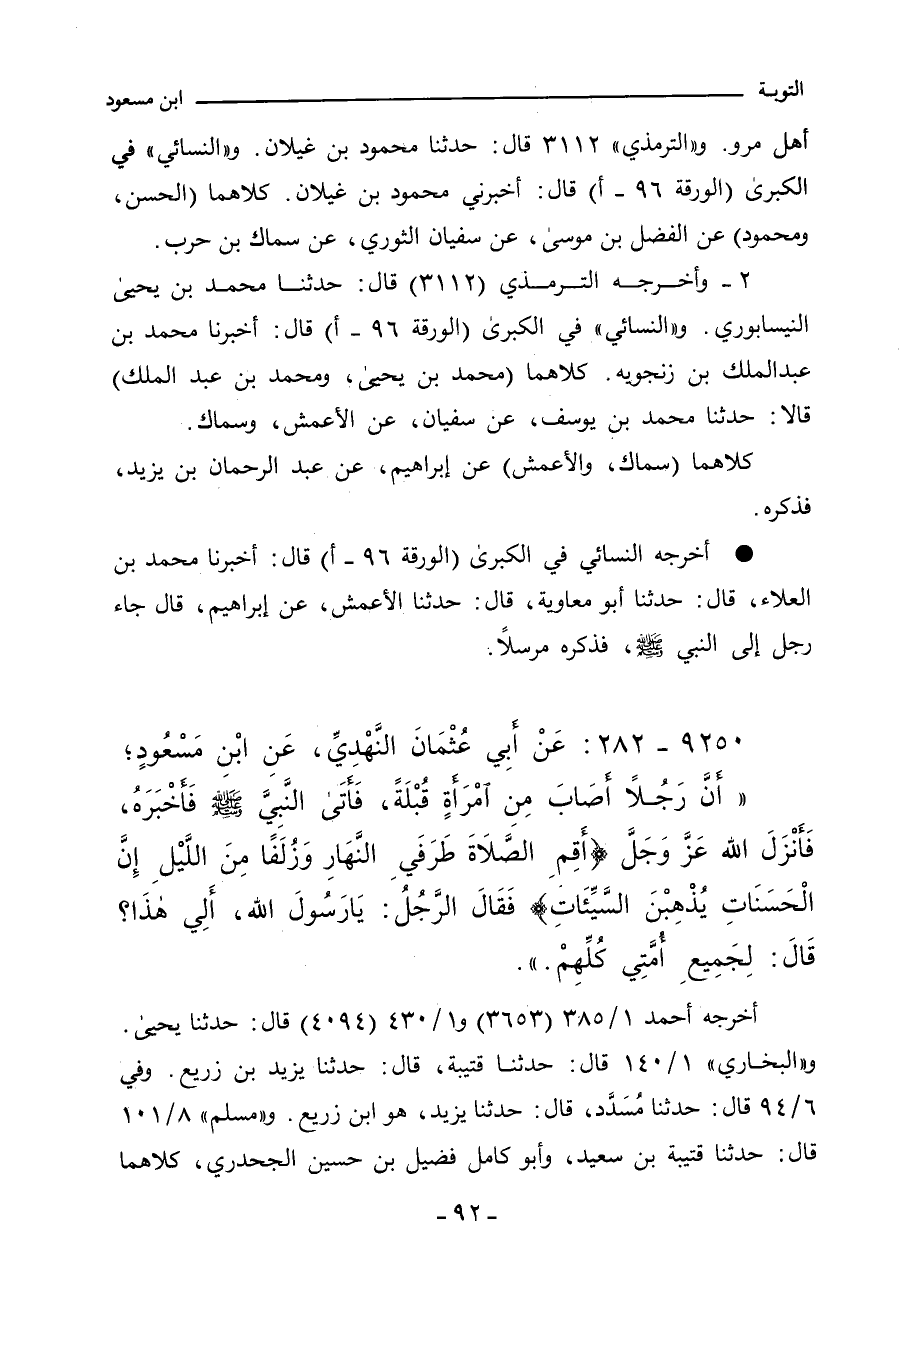 التوبـة ــــــــــــــــــــــــــــــــــــــــــــــــ ابن مسعود
أهل مرو. و«الترمذي» ٣١١٢ قال: حدثنا محمود بن غيلان. و«النسائي» في
الكبرىٰ (الورقة ٩٦ ـ أ) قال: أخبرني محمود بن غيلان. كلاهما (الحسن،
ومحمود) عن الفضل بن موسىٰ، عن سفيان الثوري، عن سماك بن حرب.
٢ ـ وأخـرجـه التـرمـذي (٣١١٢) قال: حدثنـا محمـد بن يحيىٰ
النيسابوري. و«النسائي» في الكبرىٰ (الورقة ٩٦ ـ أ) قال: أخبرنا محمد بن
عبدالملك بن زنجويه. كلاهما (محمد بن يحيىٰ، ومحمد بن عبد الملك)
قالا: حدثنا محمد بن يوسف، عن سفيان، عن الأعمش، وسماك.
كلاهما (سماك، والأعمش) عن إبراهيم، عن عبد الرحمان بن يزيد،
فذكره.
● أخرجه النسائي في الكبرىٰ (الورقة ٩٦ ـ أ) قال: أخبرنا محمد بن
العلاء، قال: حدثنا أبو معاوية، قال: حدثنا الأعمش، عن إبراهيم، قال جاء
رجل إلى النبي ﷺ، فذكره مرسلاً.
٩٢٥٠ ـ ٢٨٢: عَنْ أَبِي عُثْمَانَ النَّهْدِيِّ، عَنِ ابْنِ مَسْعُودٍ؛
« أَنَّ رَجُـلاً أَصَابَ مِنِ ٱمْرَأَةٍ قُبْلَةً، فَأَتَىٰ النَّبِيَّ ﷺ فَأَخْبَرَهُ،
فَأَنْزَلَ الله عَزَّ وَجَلَّ ﴿أَقِمِ الصَّلاَةَ طَرَفَيِ النَّهَارِ وَزُلَفًا مِنَ اللَّيْلِ إِنَّ
الْحَسَنَاتِ يُذْهِبْنَ السَّيِّئَاتِ﴾ فَقَالَ الرَّجُلُ: يَارَسُولَ الله، أَلِي هٰذَا؟
قَالَ: لِجَمِيعِ أُمَّتِي كُلِّهِمْ.».
أخرجه أحمد ٣٨٥/١ (٣٦٥٣) و٤٣٠/١ (٤٠٩٤) قال: حدثنا يحيىٰ.
و«البخـاري» ١٤٠/١ قال: حدثنـا قتيبة، قال: حدثنا يزيد بن زريع. وفي
٩٤/٦ قال: حدثنا مُسَدَّد، قال: حدثنا يزيد، هو ابن زريع. و«مسلم» ١٠١/٨
قال: حدثنا قتيبة بن سعيد، وأبو كامل فضيل بن حسين الجحدري، كلاهما
ـ ٩٢ ـ